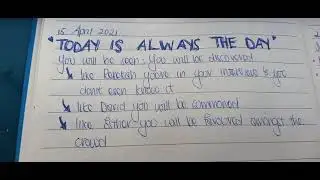 15 April 2021
"TODAY IS ALWAYS THE DAY"
You will be seen, You will be discovered
like Rebekah you're in your interview & you
don't even know it
like David you will be summoned
like Esther you will be favoured amongst the
crowd